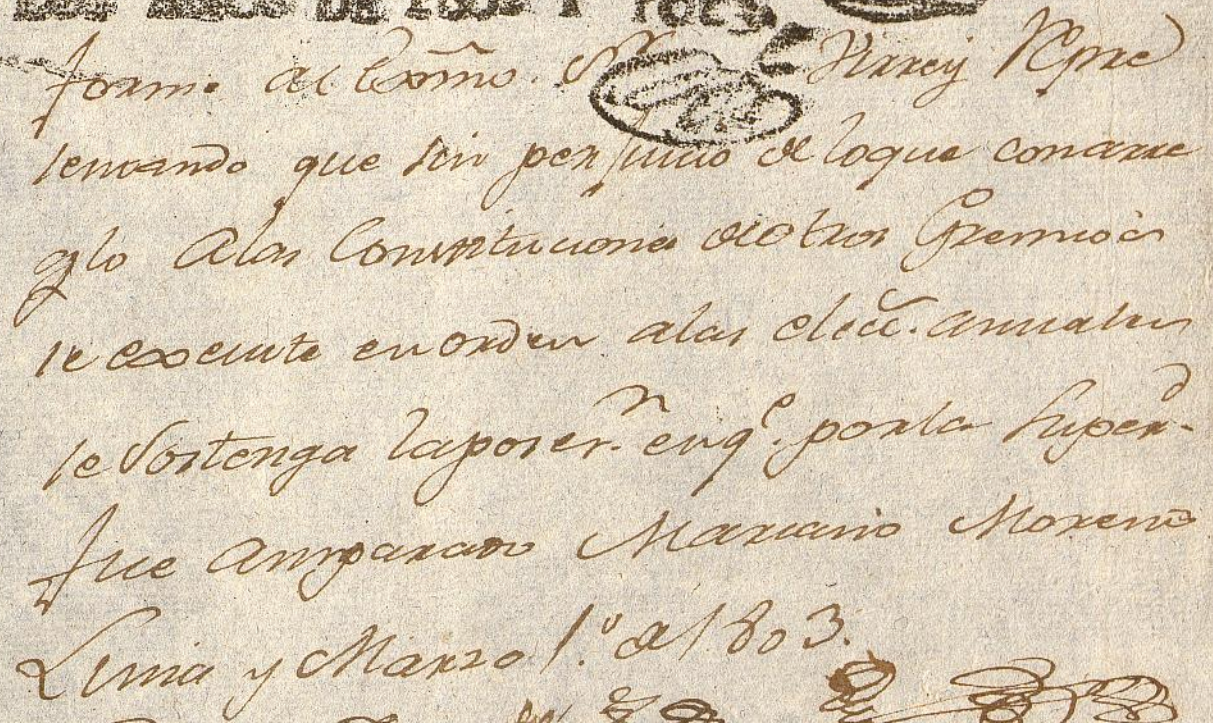 DOS AÑOS DE 1802 Y 1803.
forme al Exmo. Sor Virrey Repre
sentando que sin perjuicio de loque conarre
glo a las Constituciones de otros Gremios
se execute en orden alas elecc. annuales
se sostenga laposesn. enqe. porla Superd
fue amparado Mariano Moreno
Lima y Marzo 1.º de 1803.